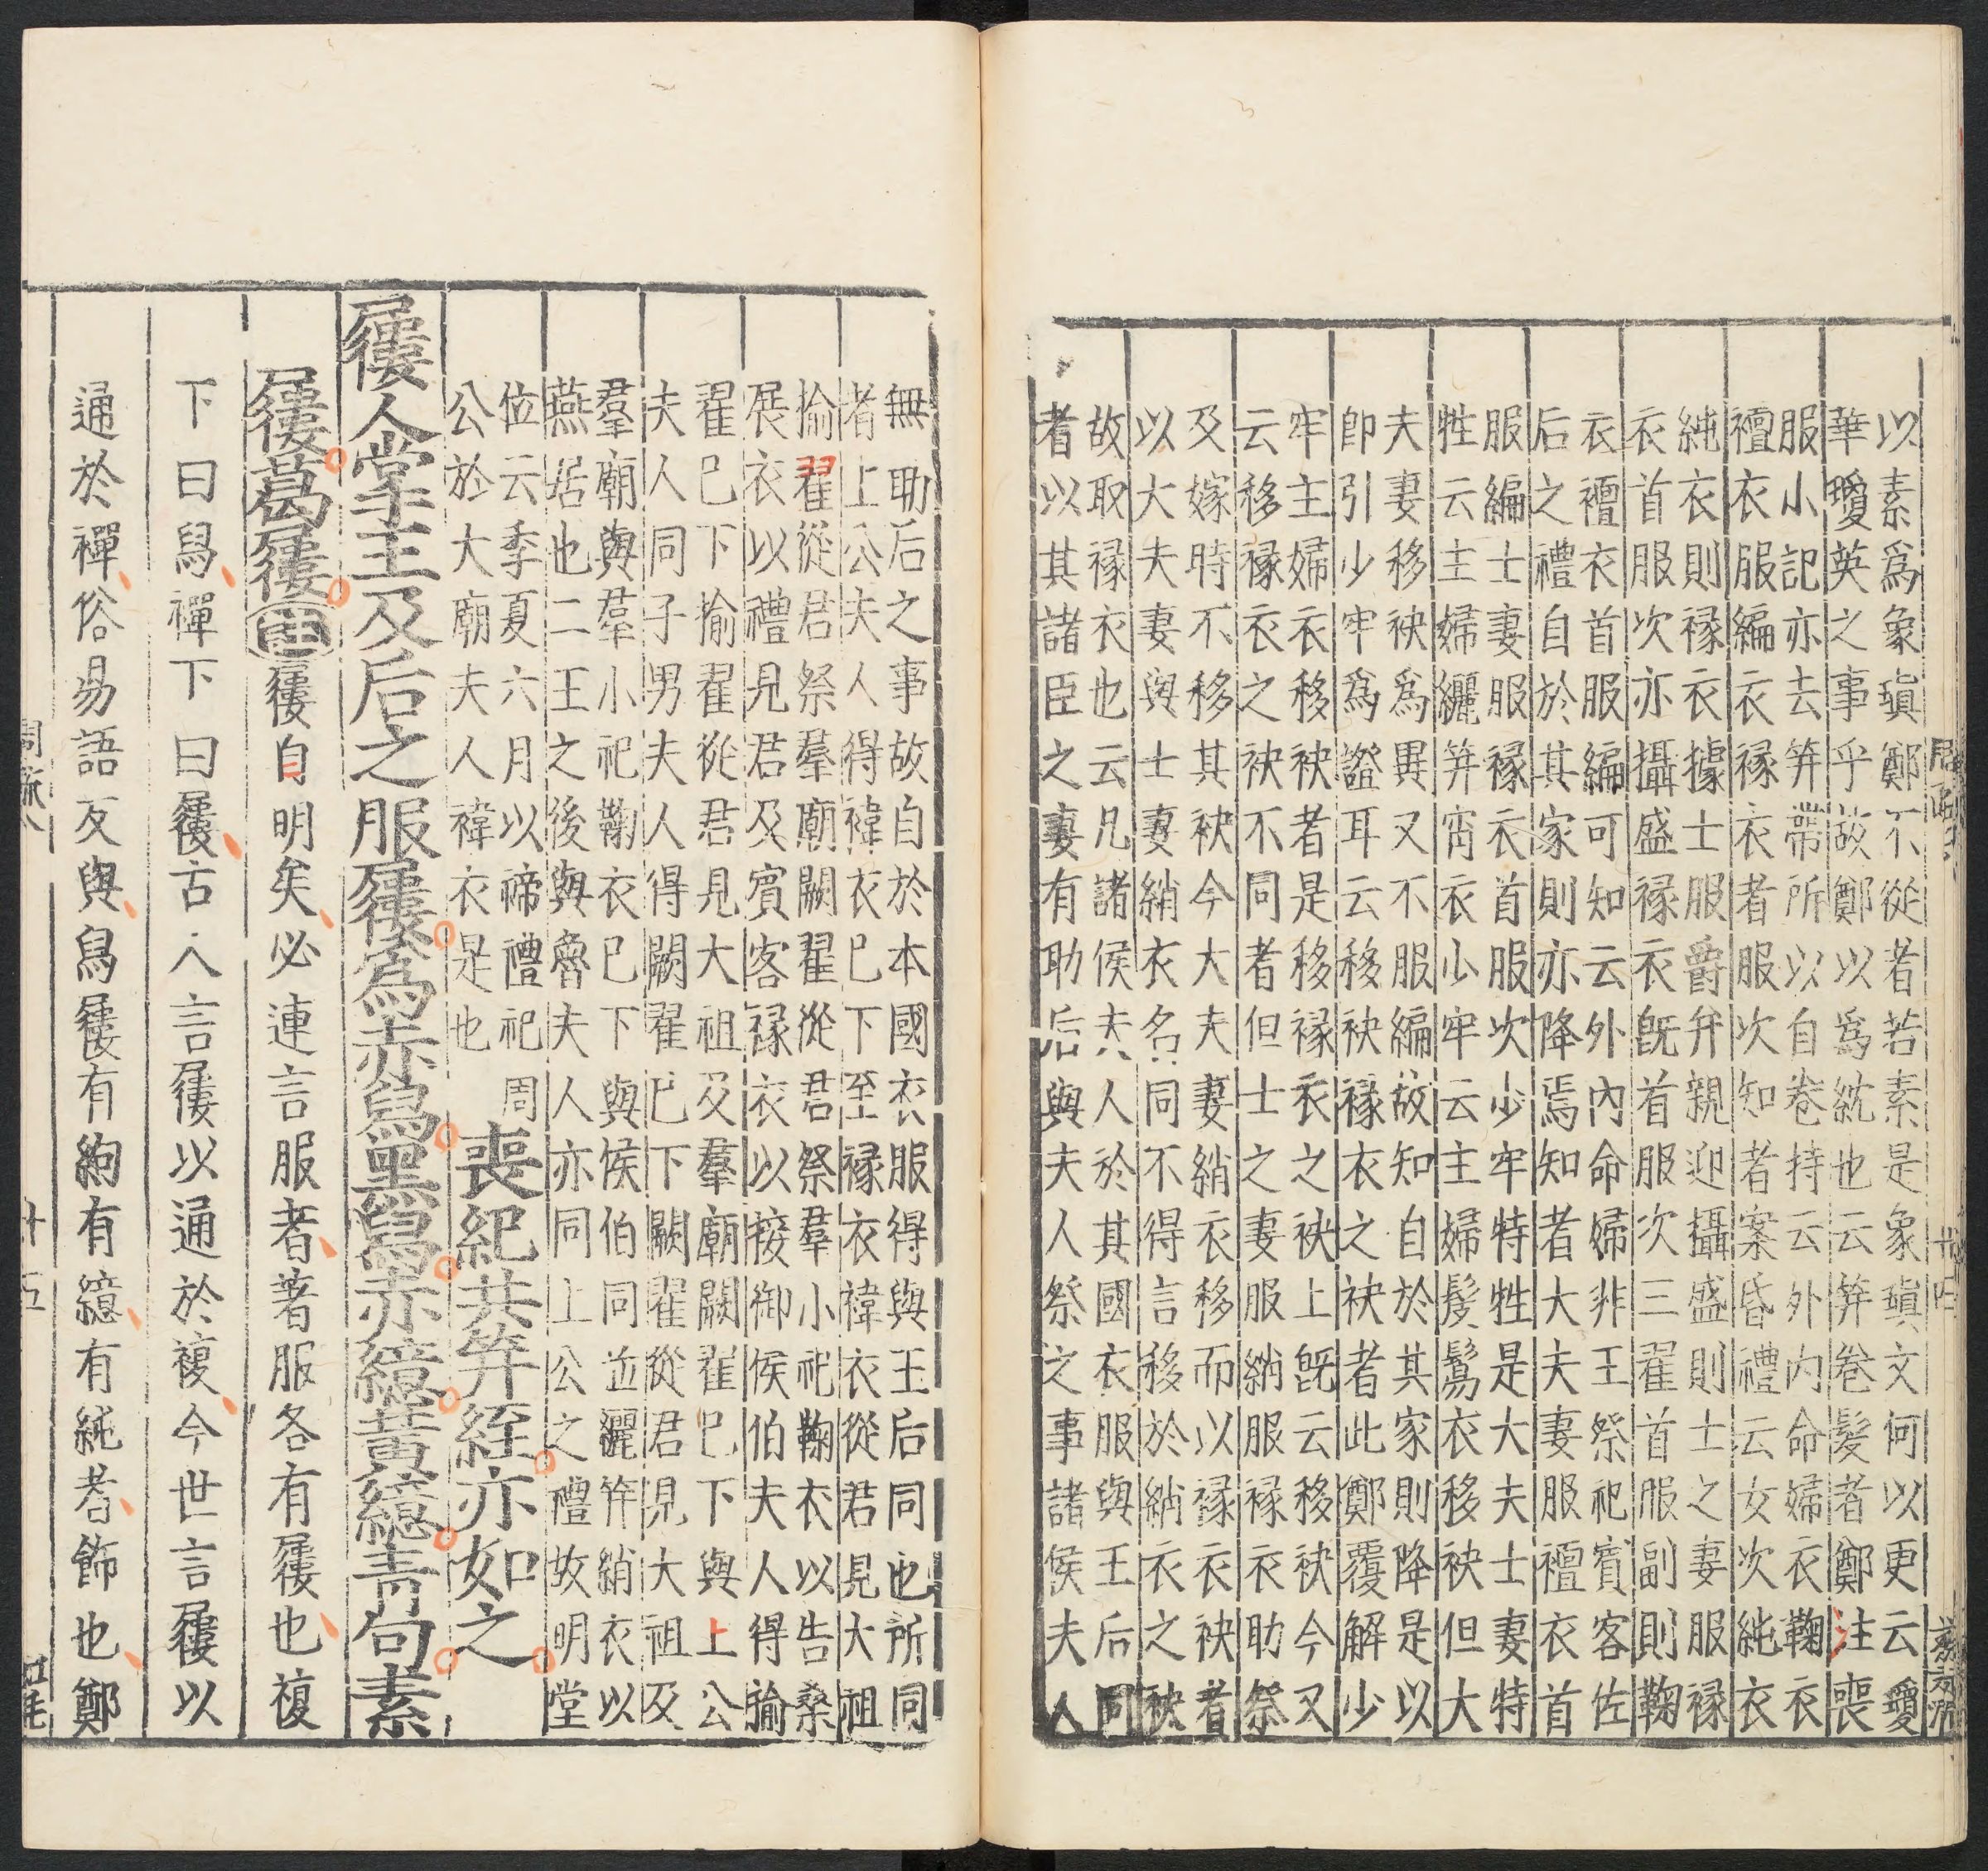 以素爲象瑱鄭不從者若素是象瑱文何以更云瓊
華瓊英之事乎故鄭以爲紞也云笄卷髮者鄭注喪
服小記亦去笄帶所以自卷持云外內命婦衣鞠衣
襢衣服編衣褖衣者服次知者案昏禮云女次純衣
純衣則褖衣據士服爵弁親迎攝盛則士之妻服褖
衣首服次亦攝盛褖衣旣首服次三翟首服副則鞠
衣襢衣首服編可知云外內命婦非王祭祀賓客佐
后之禮自於其家則亦降焉知者大夫妻服襢衣首
服編士妻服褖衣首服次少牢特牲是大夫士妻特
牲云主婦纚笄宵衣少牢云主婦髲鬄衣移袂但大
夫妻移袂爲異又不服編故知自於其家則降是以
卽引少牢爲證耳云移袂褖衣之袂者此鄭覆解少
牢主婦衣移袂者是移褖衣之袂上旣云移袂今又
云移褖衣之袂不同者但士之妻服綃服褖衣助祭
及嫁時不移其袂今大夫妻綃衣移而以褖衣袂者
以大夫妻與士妻綃衣名同不得言移於綃衣之袂
故取褖衣也云凡諸侯夫人於其國衣服與王后同
者以其諸臣之妻有助后與夫人祭之事諸侯夫人
無助后之事故自於本國衣服得與王后同也所同
者上公夫人得褘衣巳下至褖衣褘衣從君見大祖
揄翟從君祭羣廟闕翟從君祭羣小祀鞠衣以告桑
展衣以禮見君及賓客褖衣以接御侯伯夫人得揄
翟巳下揄翟從君見大祖及羣廟闕翟巳下與上公
夫人同子男夫人得闕翟巳下闕翟從君見大祖及
羣廟與羣小祀鞠衣巳下與侯伯同並纚笄綃衣以
燕居也二王之後與魯夫人亦同上公之禮故明堂
位云季夏六月以禘禮祀周
公於大廟夫人褘衣是也
喪紀共笄絰亦如之
屨人掌王及后之服屨爲赤舃黑舃赤繶黃繶青句素
屨葛屨注屨自明矣必連言服者著服各有屨也複
下曰舃禪下曰屨古人言屨以通於複今世言屨以
通於禪俗易語反與舃屨有絇有繶有純者飾也鄭